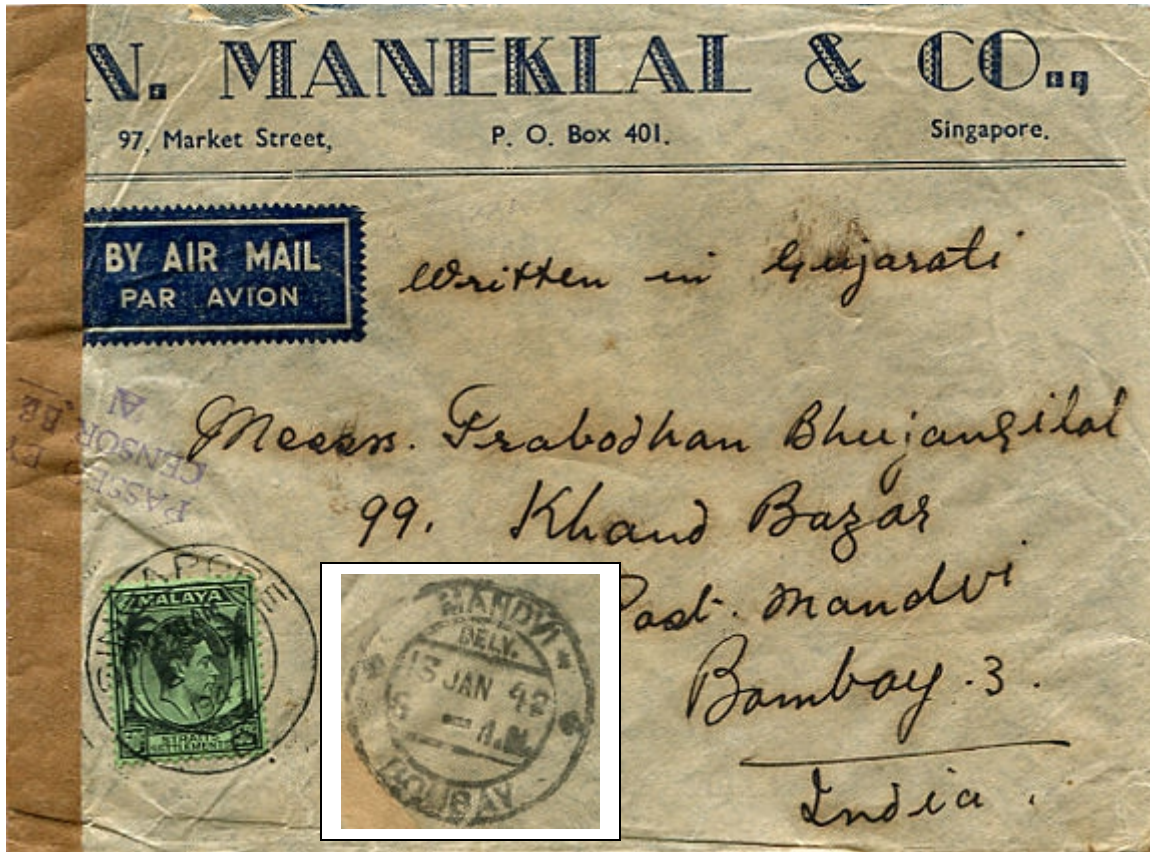 N. MANEKLAL & CO.,
97, Market Street, P. O. Box 401. Singapore.
BY AIR MAIL
PAR AVION
Written in Gujarati
PASSE BY
CENSOR
Messrs. Prabodhan Bhujangilal
99. Khand Bazar
Post. Mandvi
Bombay. 3.
India.
SINGAPORE
MALAYA
STRAITS
SETTLEMENTS
MANDVI
DELY.
13 JAN 42
6 - A.M.
BOMBAY